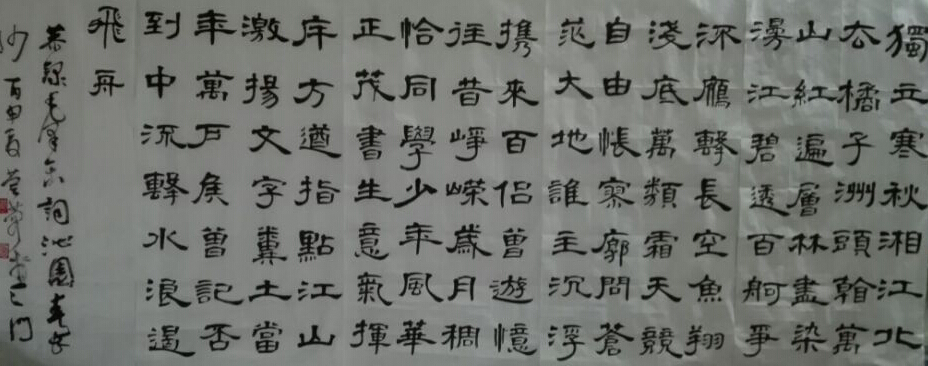 獨立寒秋湘江北
去橘子洲頭看萬
山紅遍層林盡染
漫江碧透百舸爭
流鷹擊長空魚翔
淺底萬類霜天競
自由悵寥廓問蒼
茫大地誰主沉浮
携來百侶曾遊憶
往昔崢嶸歲月稠
恰同學少年風華
正茂書生意氣揮
斥方遒指點江山
激揚文字糞土當
年萬戶侯曾記否
到中流擊水浪遏
飛舟
恭録毛澤東詞沁園春長
沙 丙申夏